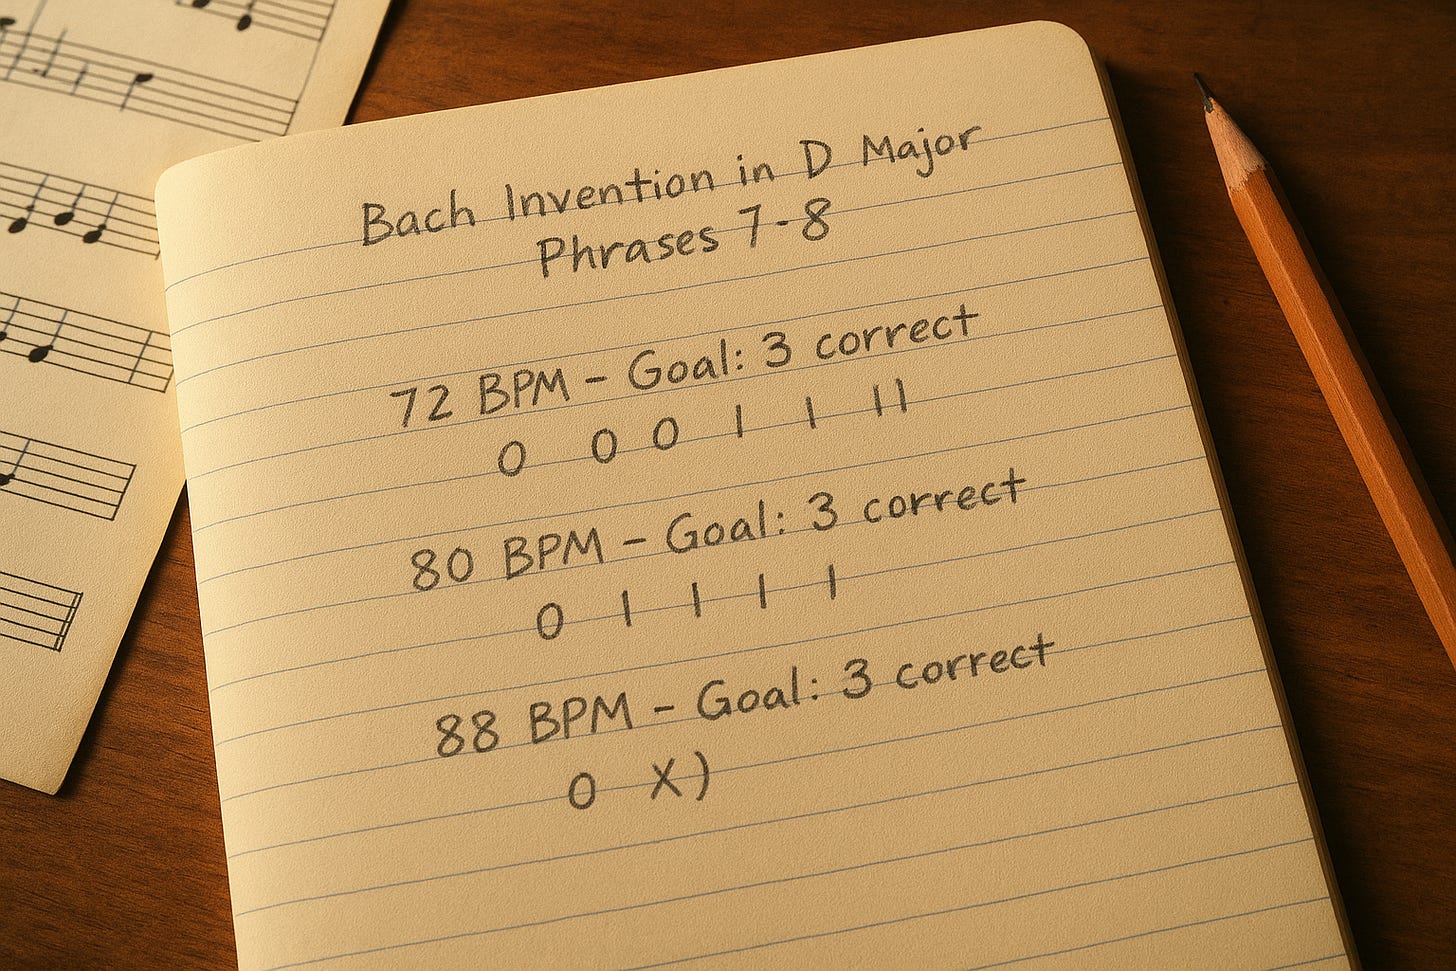 Bach Invention in D Major
Phrases 7-8
72 BPM - Goal: 3 correct
0 0 0 | | ||
80 BPM - Goal: 3 correct
0 | | | |
88 BPM - Goal: 3 correct
0 X)